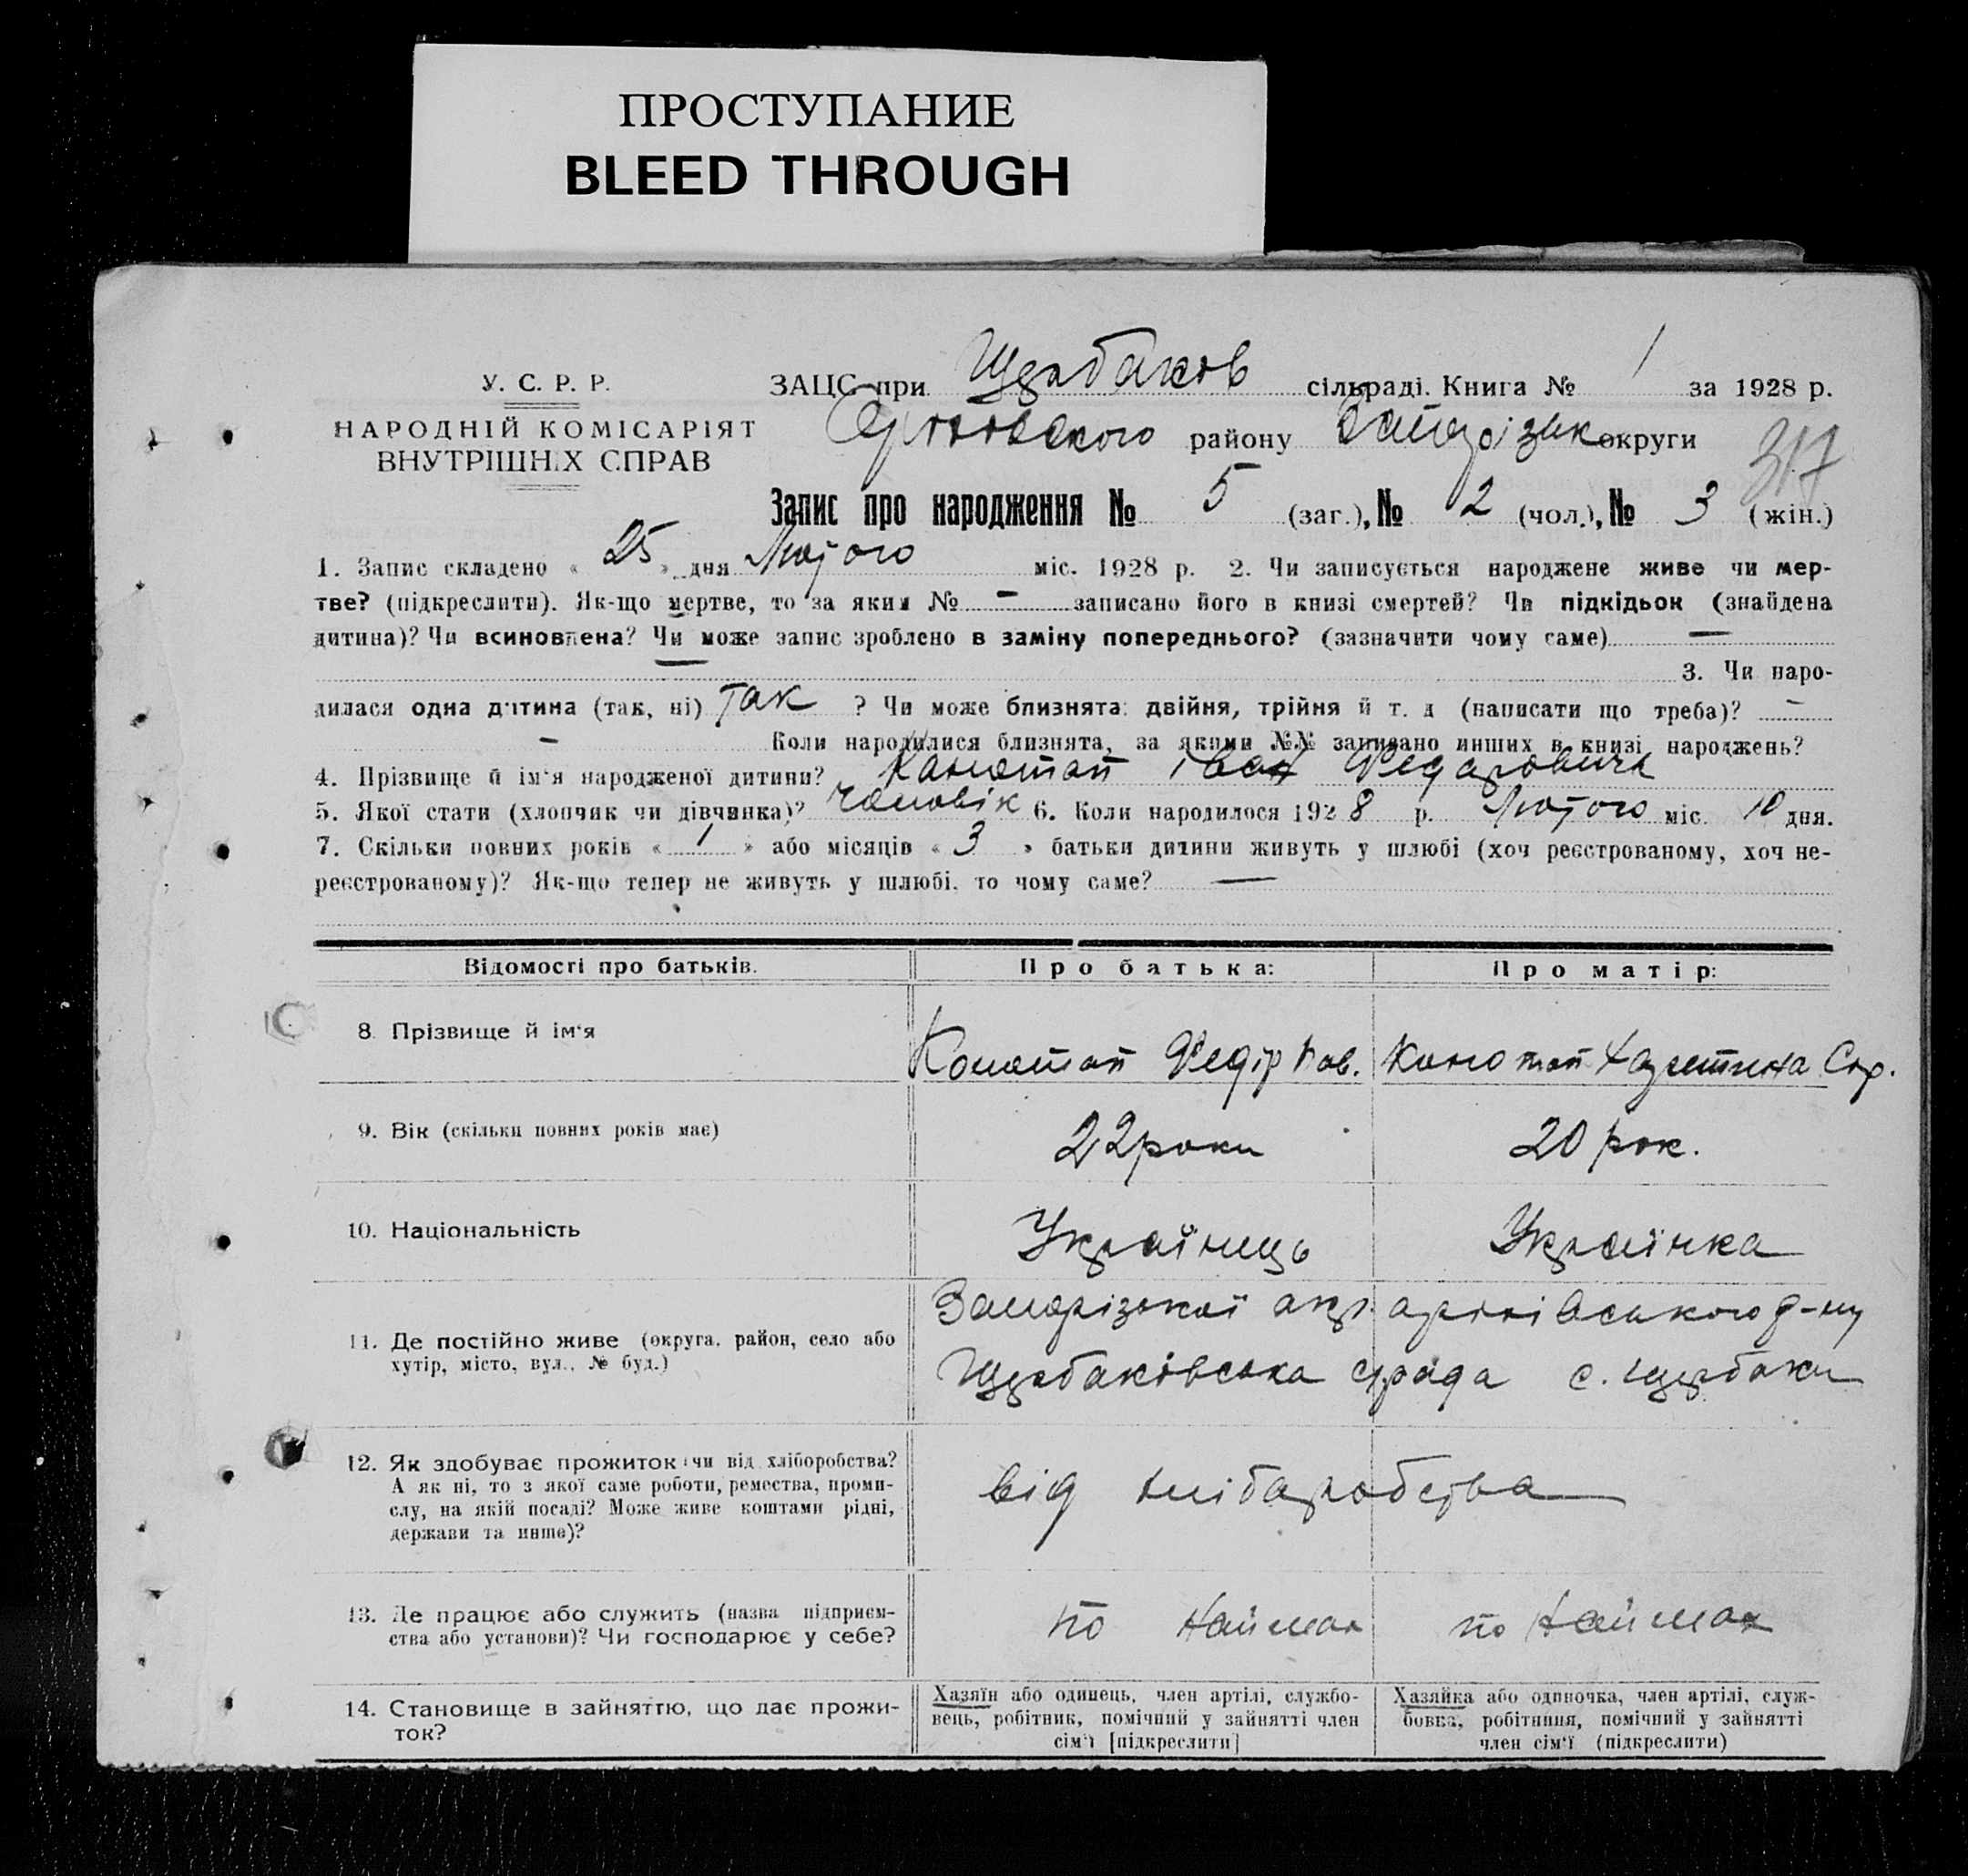 ПРОСТУПАНИЕ
BLEED THROUGH
У. С. Р. Р.
НАРОДНІЙ КОМІСАРІЯТ
ВНУТРІШНІХ СПРАВ
ЗАЦС при Щербаков сільраді. Книга № 1 за 1928 р.
району округи
317
Запис про народження № 5 (заг.), № 2 (чол.), № 3 (жін.)
1. Запис складено « 25 » дня Лютого міс. 1928 р. 2. Чи записується народжене живе чи мер-
тве? (підкреслити). Як-що мертве, то за яким № — записано його в книзі смертей? Чи підкідьок (знайдена
дитина)? Чи всиновлена? Чи може запис зроблено в заміну попереднього? (зазначити чому саме) —
3. Чи наро-
дилася одна дитина (так, ні) Так ? Чи може близнята: двійня, трійня й т. д (написати що треба)? —
— Коли народилися близнята, за якими №№ записано инших в книзі народжень?
4. Прізвище й ім'я народженої дитини? Конотоп Іван Федорович
5. Якої стати (хлопчик чи дівчинка)? чоловік 6. Коли народилося 1928 р. Лютого міс. 10 дня.
7. Скільки повних років « 1 » або місяців « 3 » батьки дитини живуть у шлюбі (хоч реєстрованому, хоч не-
реєстрованому)? Як-що тепер не живуть у шлюбі, то чому саме? —
Відомості про батьків. Про батька: Про матір:
8. Прізвище й ім'я Конотоп Федір Пав. Конотоп
9. Вік (скільки повних років має) 22 роки 20 рок.
10. Національність Українець Українка
11. Де постійно живе (округа, район, село або
хутір, місто, вул., № буд.)
Запорізької окр. р-ну
Щербаківська с. Щербаки
12. Як здобуває прожиток: чи від хліборобства?
А як ні, то з якої саме роботи, ремества, проми-
слу, на якій посаді? Може живе коштами рідні,
держави та инше)?
від хліборобства
13. Де працює або служить (назва підприєм-
ства або установи)? Чи господарює у себе?
по наймах по наймах
14. Становище в зайняттю, що дає прожи-
ток?
Хазяїн або одинець, член артілі, службо-
вець, робітник, помічний у зайнятті член
сім'ї [підкреслити]
Хазяйка або одиночка, член артілі, служ-
бовка, робітниця, помічний у зайнятті
член сім'ї (підкреслити)